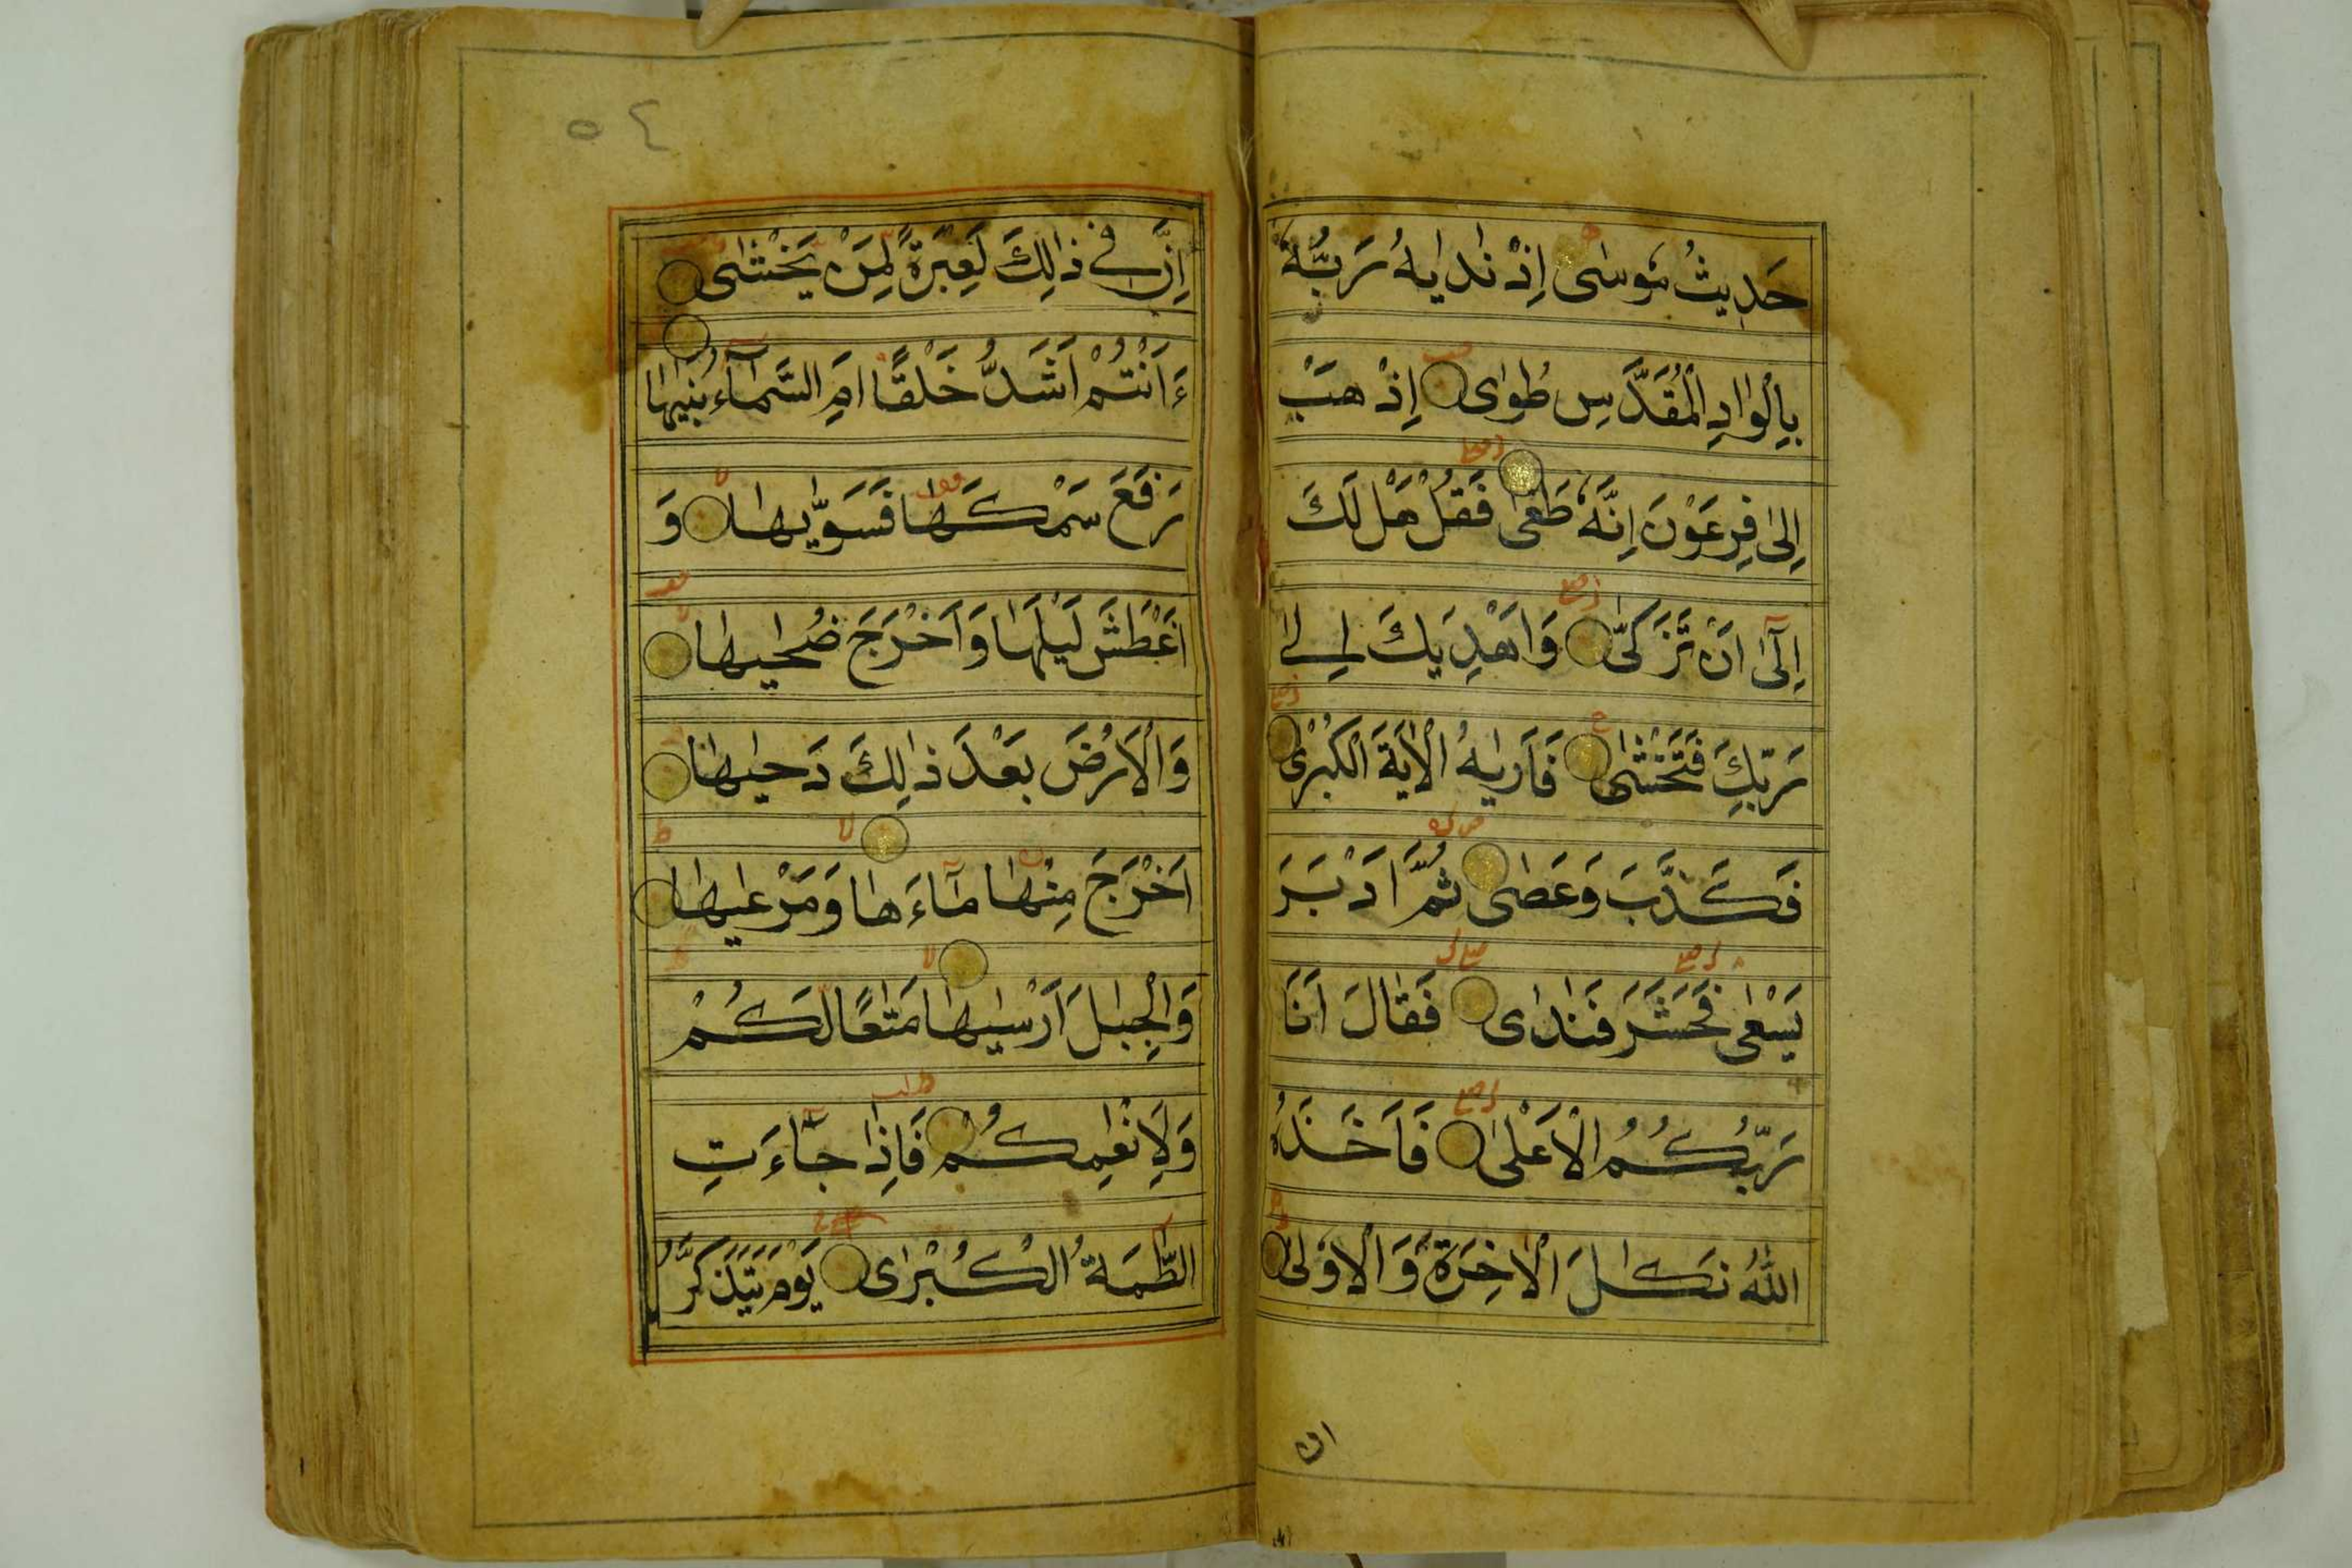 حَدِيثُ مُوسٰى اِذْ نَدٰايهُ رَبُّهُ
بِالْوَادِ الْمُقَدَّسِ طُوٰى اِذْهَبْ
اِلٰى فِرْعَوْنَ اِنَّهُ طَغٰى فَقُلْ هَلْ لَكَ
اِلٰٓى اَنْ تَزَكّٰى وَاَهْدِيَكَ اِلٰى
رَبِّكَ فَتَخْشٰى فَاَرٰيهُ الْاٰيَةَ الْكُبْرٰى
فَكَذَّبَ وَعَصٰى ثُمَّ اَدْبَرَ
يَسْعٰى فَحَشَرَ فَنَادٰى فَقَالَ اَنَا
رَبُّكُمُ الْاَعْلٰى فَاَخَذَهُ
اللّٰهُ نَكَالَ الْاٰخِرَةِ وَالْاُوْلٰى
ان
٥٤
اِنَّ فِي ذٰلِكَ لَعِبْرَةً لِمَنْ يَخْشٰى
ءَاَنْتُمْ اَشَدُّ خَلْقًا اَمِ السَّمَآءُ بَنٰيهَا
رَفَعَ سَمْكَهَا فَسَوّٰيهَا وَ
اَغْطَشَ لَيْلَهَا وَاَخْرَجَ ضُحٰيهَا
وَالْاَرْضَ بَعْدَ ذٰلِكَ دَحٰيهَا
اَخْرَجَ مِنْهَا مَآءَهَا وَمَرْعٰيهَا
وَالْجِبٰلَ اَرْسٰيهَا مَتٰعًا لَكُمْ
وَلِاَنْعٰمِكُمْ فَاِذَا جَآءَتِ
الطَّمَةُ الْكُبْرٰى يَوْمَ يَتَذَكَّرُ